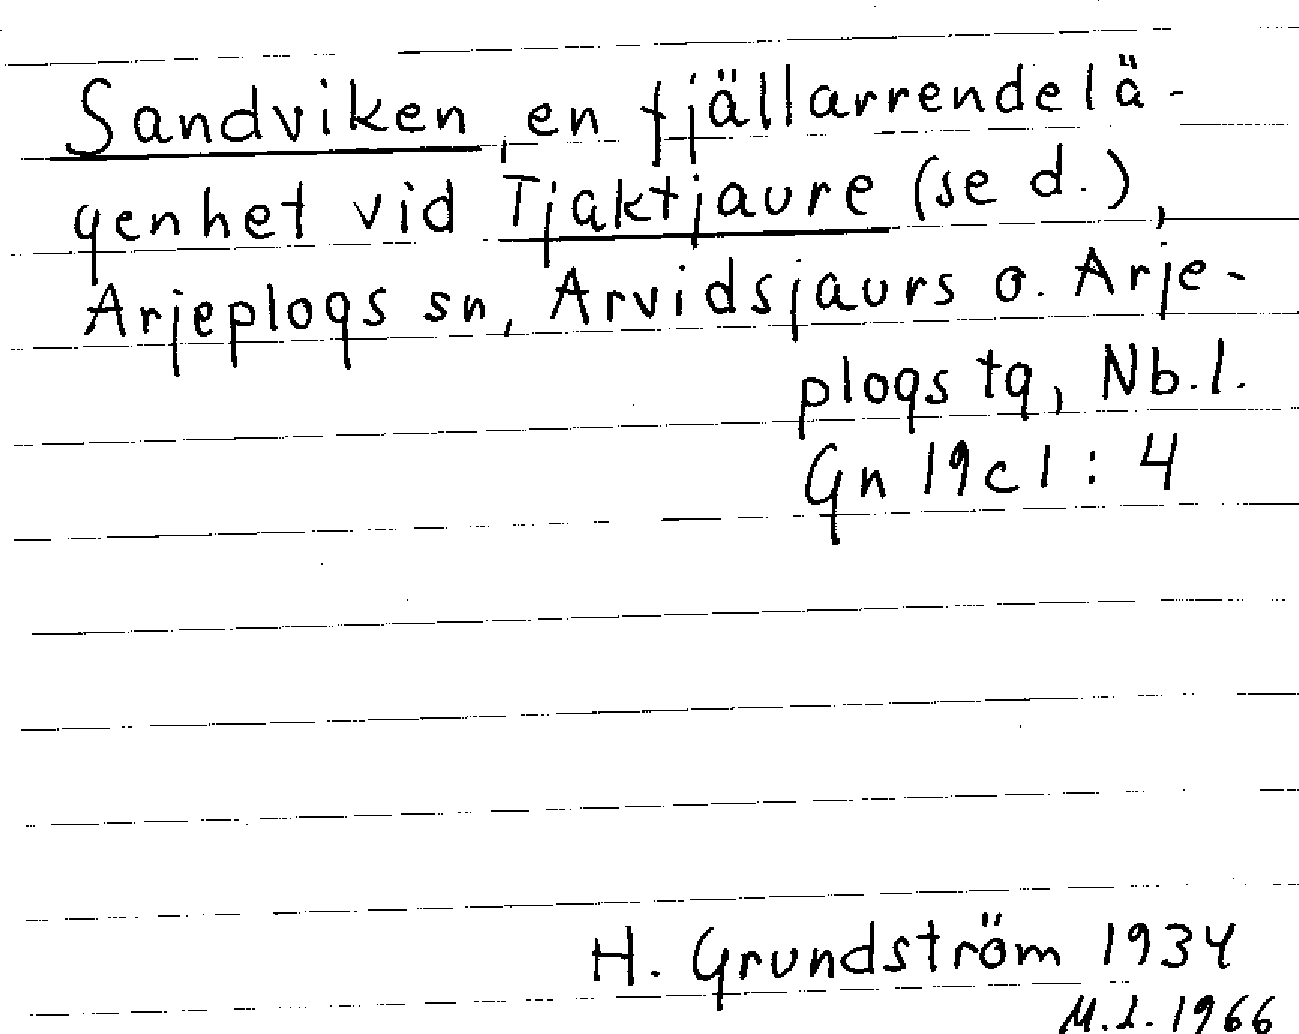 Sandviken, en fjällarrendelä-
genhet vid Tjaktjaure (se d.),
Arjeplogs sn, Arvidsjaurs o. Arje-
plogs tg, Nb.l.
Gn 19c1 : 4
H. Grundström 1934
M.L. 1966